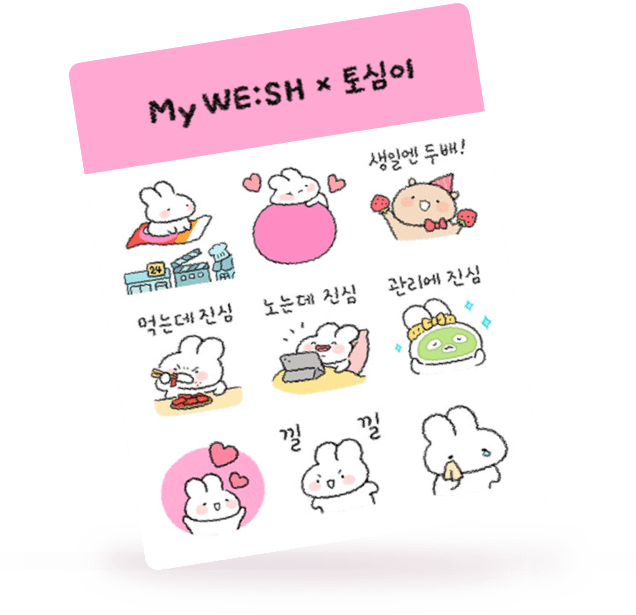 My WE:SH × 토심이
생일엔 두배!
24
먹는데 진심
노는데 진심
관리에 진심
낄
낄